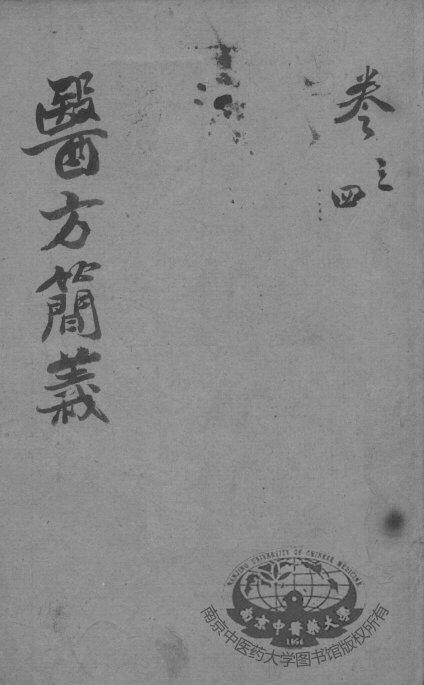 卷三
四
醫方簡義
NANJING UNIVERSITY OF CHINESE MEDICINE
南京中醫藥大學
1954
南京中医药大学图书馆版权所有